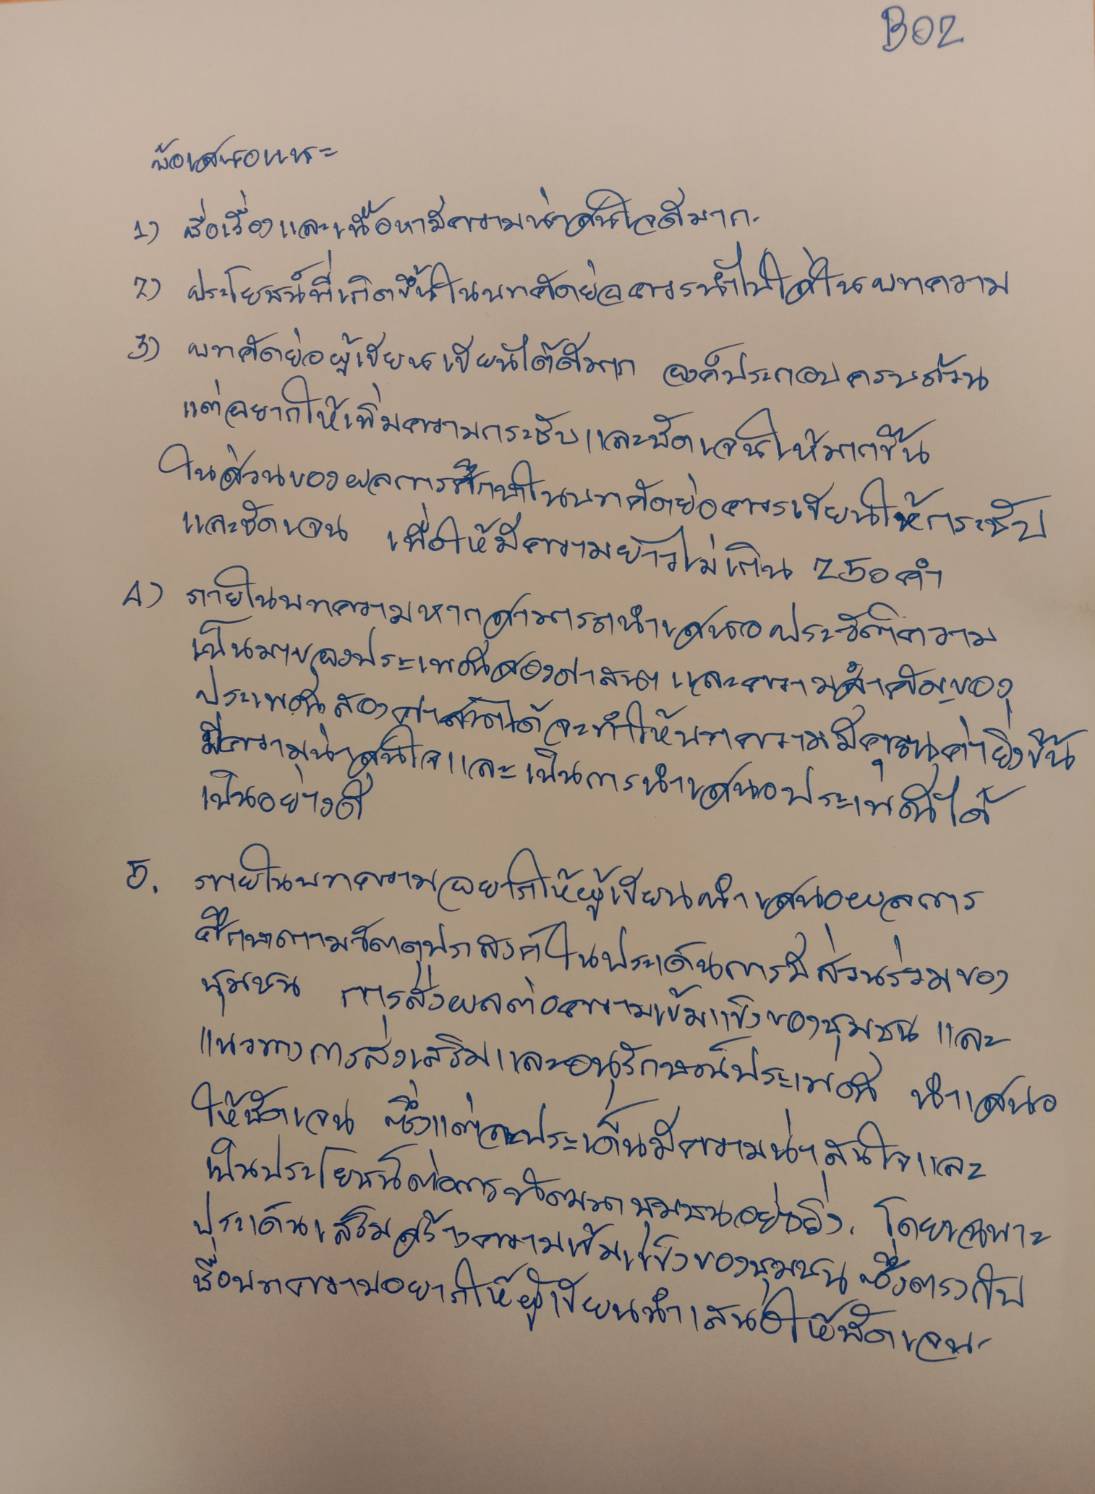 B02
ข้อเสนอแนะ
1) ชื่อเรื่องและเนื้อหามีความน่าสนใจดีมาก.
2) ประโยชน์ที่เกิดขึ้นในบทคัดย่อควรนำไปใส่ในบทความ
3) บทคัดย่อผู้เขียนเขียนได้ดีมาก องค์ประกอบครบถ้วน
แต่อยากให้เพิ่มความกระชับและชัดเจนให้มากขึ้น
ในส่วนของผลการศึกษาในบทคัดย่อควรเขียนให้กระชับ
และชัดเจน เพื่อให้มีความยาวไม่เกิน 250 คำ
4) ภายในบทความหากสามารถนำเสนอประวัติความ
เป็นมาของประเพณีสองศาสนา และความสำคัญของ
ประเพณีสองศาสนาได้จะทำให้บทความมีคุณค่ายิ่งขึ้น
มีความน่าสนใจและเป็นการนำเสนอประเพณีได้
เป็นอย่างดี
5. ภายในบทความอยากให้ผู้เขียนนำเสนอผลการ
ศึกษาตามวัตถุประสงค์ในประเด็นการมีส่วนร่วมของ
ชุมชน การส่งผลต่อความเข้มแข็งของชุมชน และ
แนวทางการส่งเสริมและอนุรักษณ์ประเพณี นำเสนอ
ให้ชัดเจน ซึ่งแต่ละประเด็นมีความน่าสนใจและ
เป็นประโยชน์ต่อการพัฒนาชุมชนอย่างยิ่ง. โดยเฉพาะ
ประเด็นเสริมสร้างความเข้มแข็งของชุมชน ซึ่งตรงกับ
ชื่อบทความอยากให้ผู้เขียนนำเสนอให้ชัดเจน.